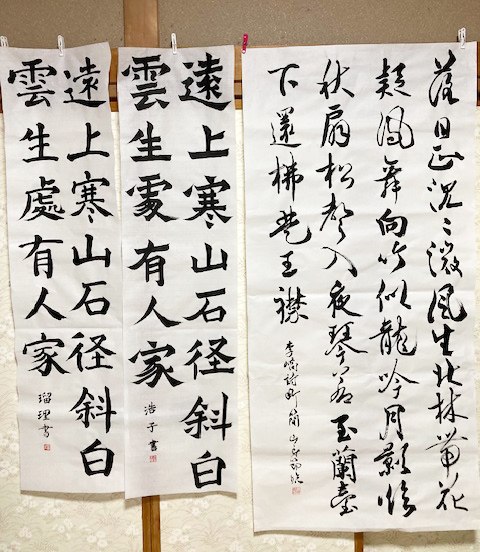 落日正沈々微風生北林帶花
疑鳳舞向竹似龍吟月影臨
秋扇松聲入夜琴若至蘭臺
下還拂楚王襟
李嶠詩
遠上寒山石径斜白
雲生處有人家
浩子書
遠上寒山石径斜白
雲生處有人家
瑠理書